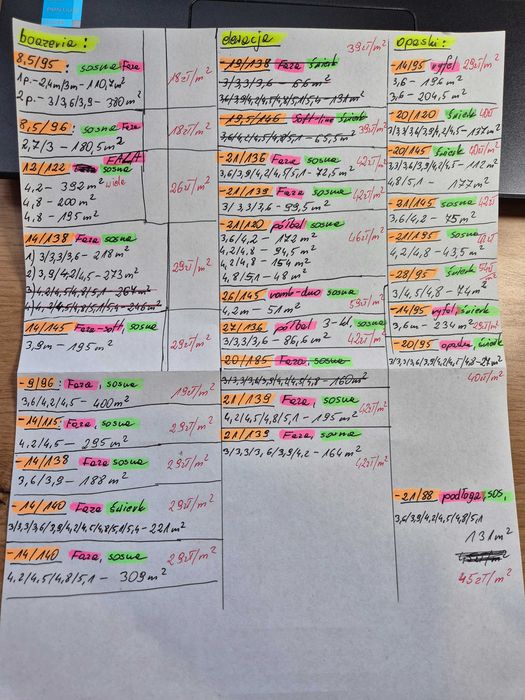 boazeria:
8,5/95 : sosna Faza
1p. - 2,4m/3m - 110,7m²
2p. - 3/3,6/3,9 - 380m²
18zł/m²
8,5/96 : sosna Faza
2,7/3 - 180,5m²
18zł/m²
12/122 FALA sosna
4,2 - 392m² wiele
4,8 - 200m²
4,8 - 195m²
26zł/m²
14/138 Faza sosna
1) 3/3,3/3,6 - 218m²
2) 3,9/4,2/4,5 - 273m²
3) 4,2/4,5/4,8/5,1 - 267m²
4) 4,2/4,5/4,8/5,1/5,4 - 246m²
29zł/m²
14/145 Faza-soft, sosna
3,9m - 195m²
29zł/m²
- 9/96 : Faza, sosna
3,6/4,2/4,5 - 400m²
19zł/m²
- 14/115 : Faza, sosna
4,2/4,5 - 295m²
29zł/m²
- 14/138 Faza, sosna
3,6/3,9 - 188m²
29zł/m²
- 14/140 Faza świerk
3/3,3/3,6/3,9/4,2/4,5/4,8/5,1/5,4 - 221m²
29zł/m²
- 14/140 Faza, sosna
4,2/4,5/4,8/5,1 - 309m²
29zł/m²
elewacja
39zł/m²
- 19/138 Faza świerk
3/3,3/3,6 - 66m²
3,6/3,9/4,2/4,5/4,8/5,1/5,4 - 131m²
- 19,5/146 Soft-line świerk
3,6/4,2/4,5/4,8/5,1 - 65,5m²
39zł/m²
- 21/136 Faza, sosna
3,6/3,9/4,2/4,5/5,1 - 72,5m²
42zł/m²
- 21/139 Faza, sosna
3/3,3/3,6 - 99,5m²
42zł/m²
- 21/120 półbal sosna
3,6/4,2 - 172m²
4,2/4,8 - 94,5m²
4,2/4,8 - 154m²
4,8/5,1 - 48m²
46zł/m²
26/145 romb-duo, sosna
4,2m - 51m²
59zł/m²
27/136 półbal 3-kl, sosna
3/3,3/3,6 - 86,6m²
42zł/m²
20/185 Faza, sosna
3/3,3/3,6/3,9/4,2/4,5/4,8 - 160m²
21/139 Faza, sosna
4,2/4,5/4,8/5,1 - 195m²
42zł/m²
21/139 Faza, sosna
3/3,3/3,6/3,9/4,2 - 164m²
42zł/m²
opaski:
- 14/95 ryfel 29zł/m²
3,6 - 196m²
3,6 - 204,5m²
- 20/120 świerk 40zł
3/3,3/3,6/3,9/4,2/4,5 - 137m²
- 20/145 świerk 40zł/m²
3/3,3/3,6/3,9/4,2/4,5 - 112m²
4,8/5,1 177m²
- 21/145 sosna 42zł
3,6/4,2 - 75m²
- 21/195 sosna 42zł/m²
4,2/4,8 - 43,5m²
- 28/95 świerk 54zł/m²
3/4,5/4,8 - 74m²
- 14/95 ryfel, świerk
3,6m - 234m² 29zł/m²
- 20/95 opaska, świerk
40zł/m²
- 21/88 podłoga, sos,
3,6/3,9/4,2/4,5/4,8/5,1
131m²
45zł/m²